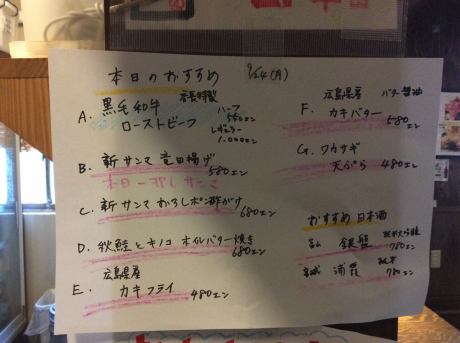 本日のおすすめ
9/24(月)
店長特製
A. 黒毛和牛 ハーフ 550エン
ローストビーフ レギュラー 1.000エン
B. 新サンマ 竜田揚げ 580エン
本日一押しサンマ
C. 新サンマ おろしポン酢がけ 680エン
D. 秋鮭とキノコ オイルバター焼き 680エン
広島県産
E. カキフライ 480エン
広島県産 バター醤油
F. カキバター 580エン
G. ワカサギ
天ぷら 480エン
おすすめ日本酒
銀盤 780エン
宮城 浦霞 純米 780エン